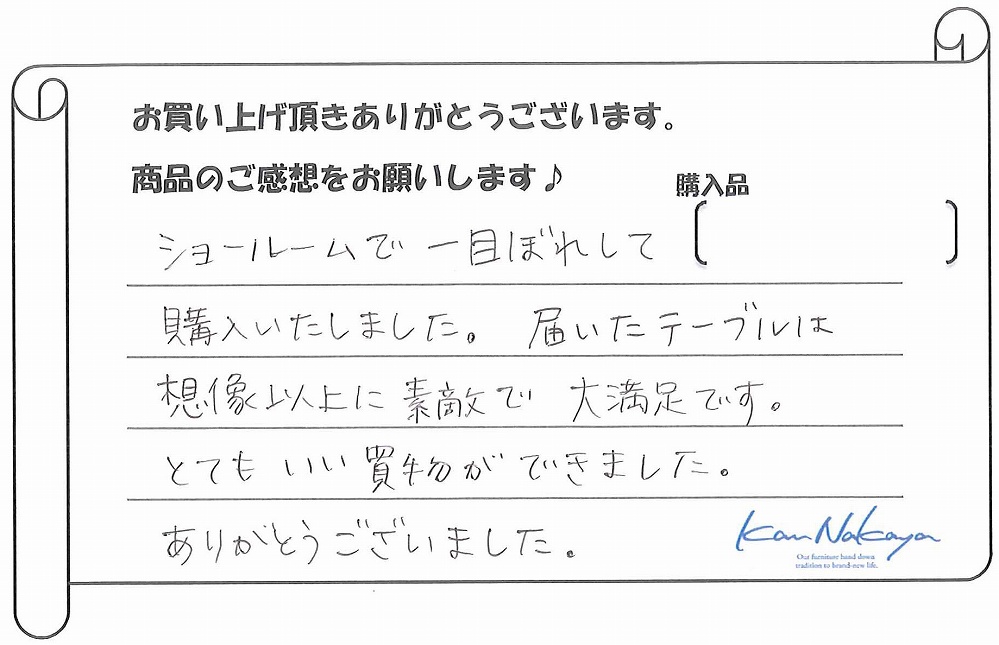 お買い上げ頂きありがとうございます。
商品のご感想をお願いします♪
購入品
ショールームで一目ぼれして
購入いたしました。 届いたテーブルは
想像以上に素敵で 大満足です。
とても いい買物ができました。
ありがとうございました。
Kan Nakaya
Our furniture hand down
tradition to brand-new life.